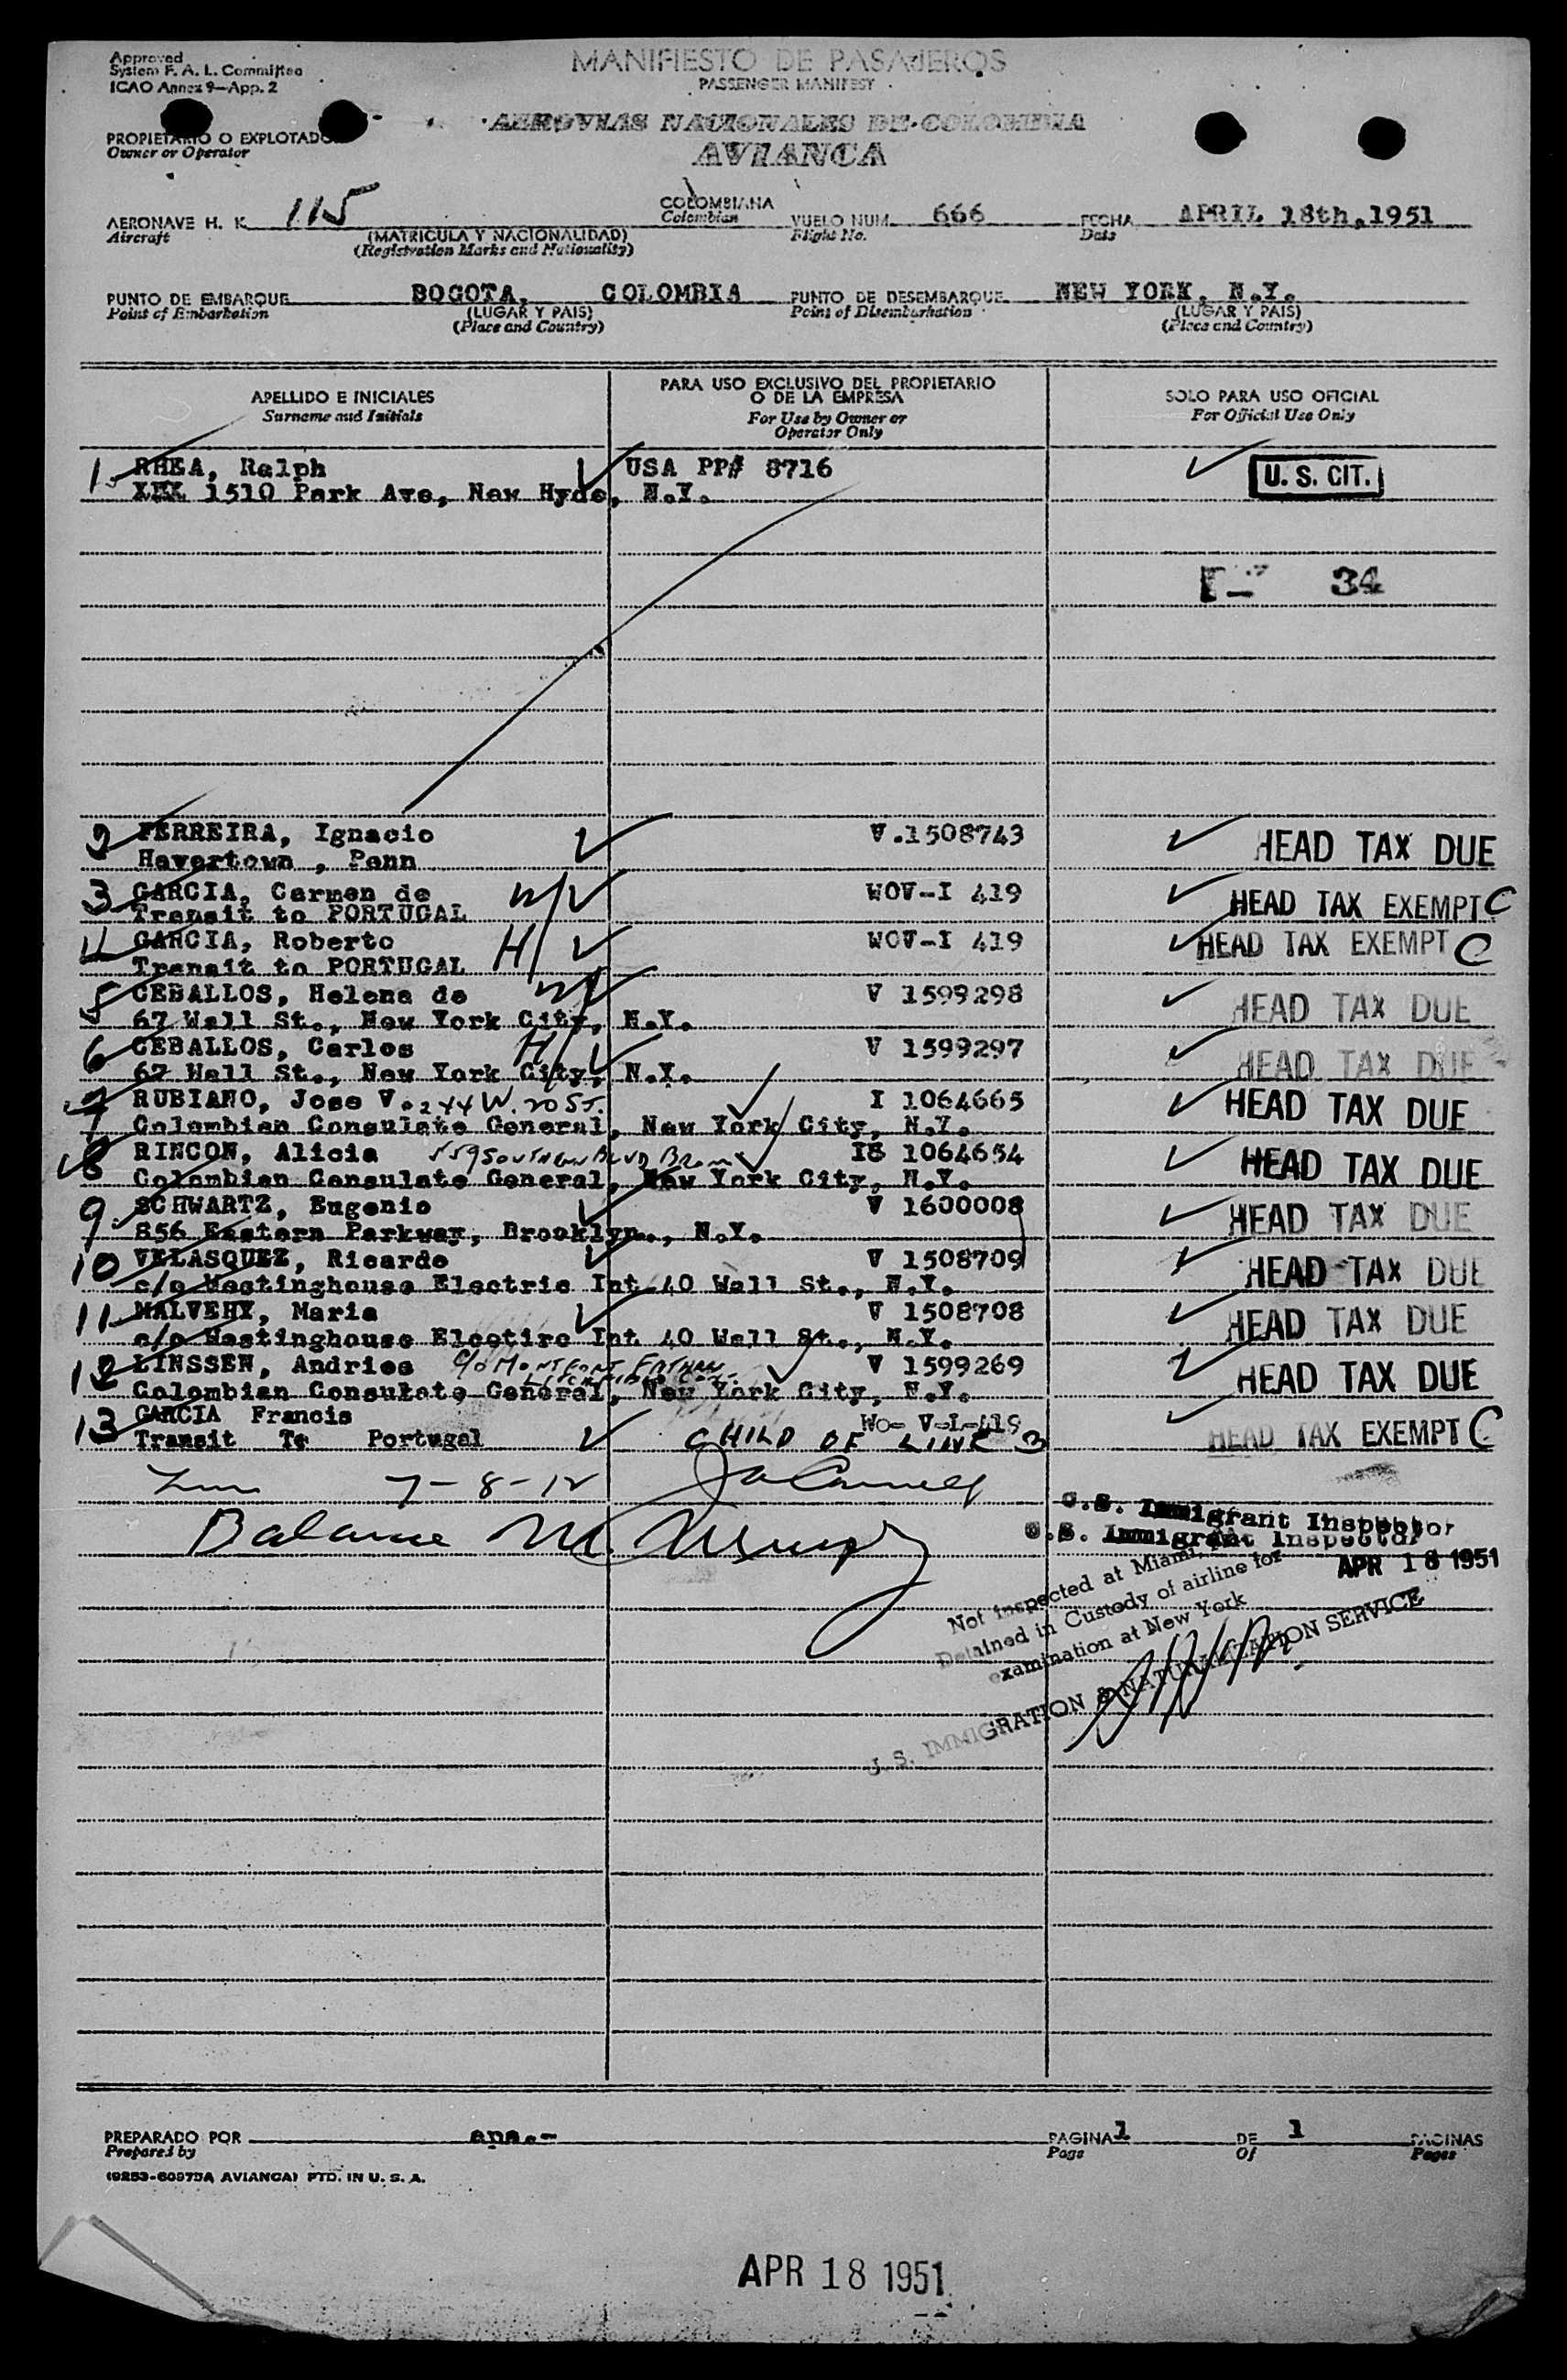 Approved
System F. A. L. Committee
ICAO Annex 9—App. 2
MANIFIESTO DE PASAJEROS
PASSENGER MANIFEST
PROPIETARIO O EXPLOTADOR
Owner or Operator
AEROVIAS NACIONALES DE COLOMBIA
AVIANCA
AERONAVE H. K. 115 COLOMBIANA VUELO NUM. 666 FECHA APRIL 18th, 1951
Aircraft (MATRICULA Y NACIONALIDAD) Colombian Flight No. Date
(Registration Marks and Nationality)
PUNTO DE EMBARQUE BOGOTA, COLOMBIA PUNTO DE DESEMBARQUE NEW YORK, N.Y.
Point of Embarkation (LUGAR Y PAIS) Point of Disembarkation (LUGAR Y PAIS)
(Place and Country) (Place and Country)
APELLIDO E INICIALES PARA USO EXCLUSIVO DEL PROPIETARIO O DE LA EMPRESA SOLO PARA USO OFICIAL
Surname and Initials For Use by Owner or Operator Only For Official Use Only
1. RHEA, Ralph USA PP# 8716 U. S. CIT.
XXX 1510 Park Ave, New Hyde, N.Y.
34
2 FERREIRA, Ignacio V.1508743 HEAD TAX DUE
Havertown , Penn
3 GARCIA, Carmen de W/ WOV-I 419 HEAD TAX EXEMPT C
Transit to PORTUGAL
4 GARCIA, Roberto H/ WOV-I 419 HEAD TAX EXEMPT C
Transit to PORTUGAL
5 CEBALLOS, Helena de W/ V 1599298 HEAD TAX DUE
67 Wall St., New York City, N.Y.
6 CEBALLOS, Carlos H/ V 1599297 HEAD TAX DUE
67 Wall St., New York City, N.Y.
7 RUBIANO, Jose V. 244 W. 20 ST. I 1064665 HEAD TAX DUE
Colombian Consulate General, New York City, N.Y.
8 RINCON, Alicia 559 SOUTHERN BLVD I8 1064654 HEAD TAX DUE
Colombian Consulate General, New York City, N.Y.
9. SCHWARTZ, Eugenio V 1600008 HEAD TAX DUE
856 Eastern Parkway, Brooklyn., N.Y.
10 VELASQUEZ, Ricardo V 1508709 HEAD TAX DUE
c/o Westinghouse Electric Int 40 Wall St., N.Y.
11. MALVEHY, Maria V 1508708 HEAD TAX DUE
c/o Westinghouse Electirc Int 40 Wall St., N.Y.
12 LINSSEN, Andries C/O MONTFORT FATHERS V 1599269 HEAD TAX DUE
Colombian Consulate General, New York City, N.Y.
13 GARCIA Francis Wo- V-I-419 HEAD TAX EXEMPT C
Transit To Portugal CHILD OF LINE 3
7-8-12
Balance M. Murphy
U.S. Immigrant Inspector
U.S. Immigrant Inspector
APR 18 1951
Not inspected at Miami,
Detained in Custody of airline for
examination at New York
U. S. IMMIGRATION & NATURALIZATION SERVICE
PREPARADO POR apa.- PAGINA 1 DE 1 PAGINAS
Prepared by Page Of Pages
(9253-60975A AVIANCA) PTD. IN U. S. A.
APR 18 1951